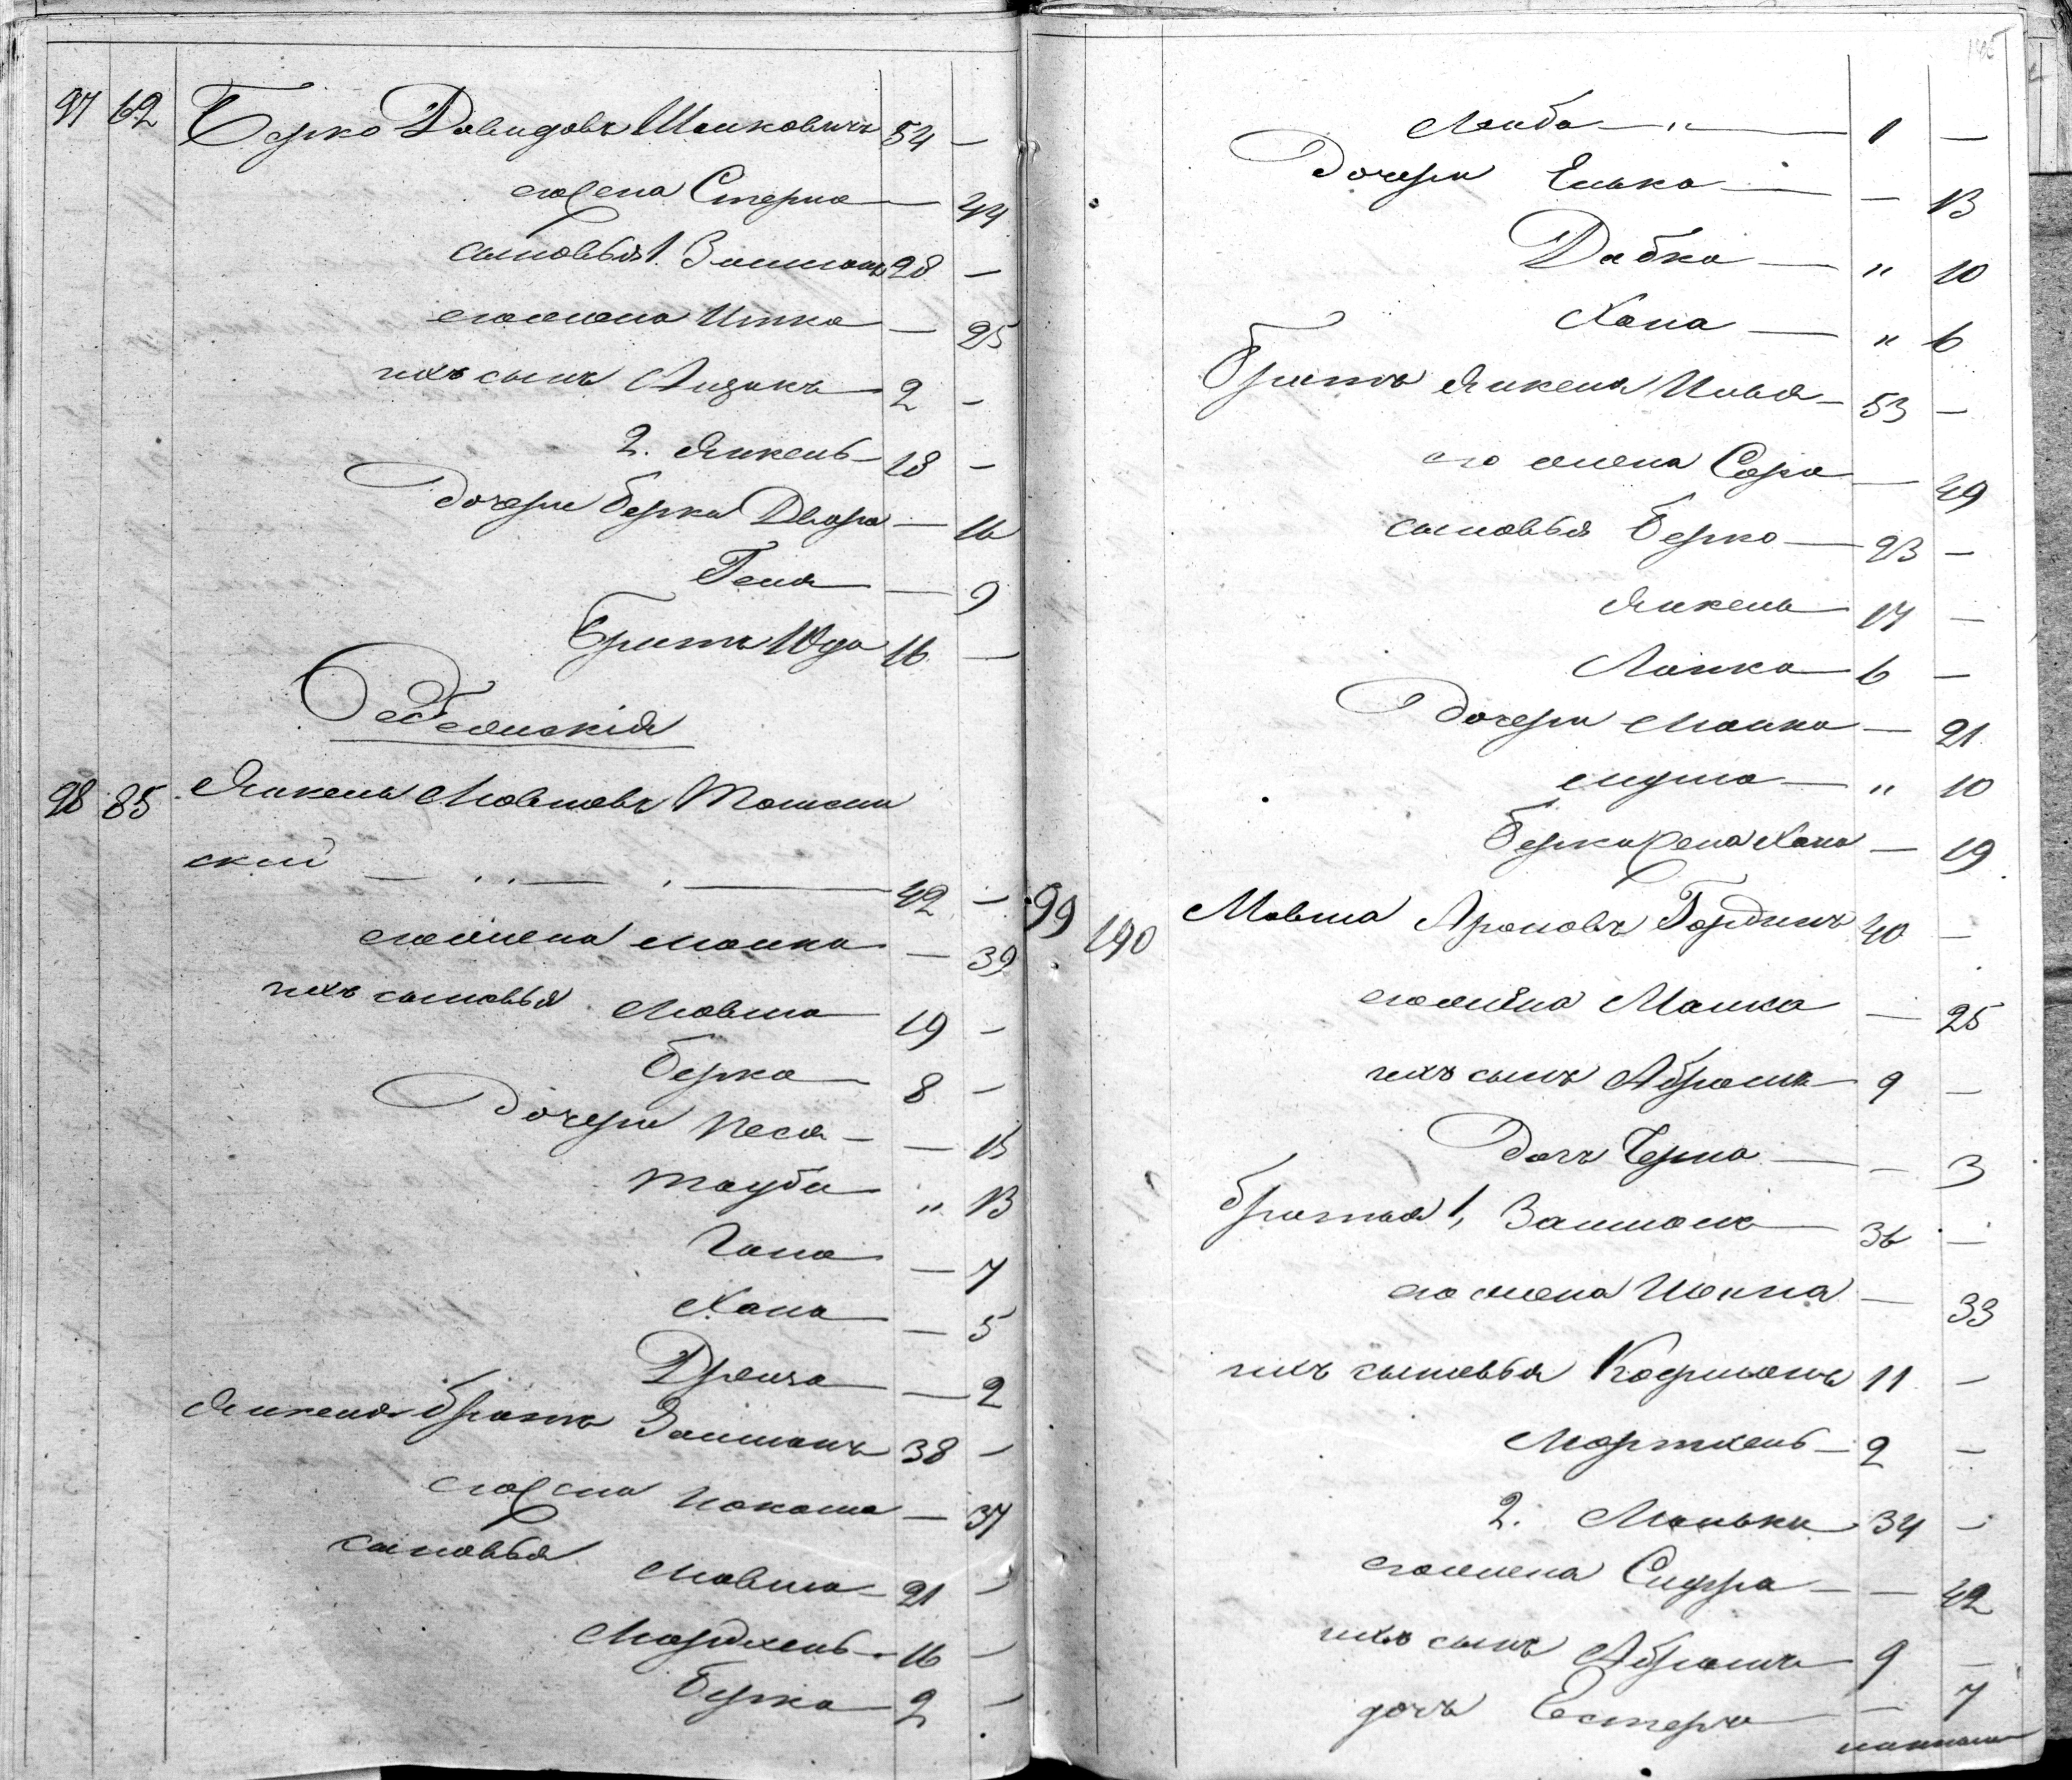 97 62 Берко Давидовъ Шмиковичъ 54 —
его жена Стерна — 44
сыновья 1. Залманъ 28 —
его жена Итка — 25
ихъ сынъ Айзикъ 2 —
2. Янкель 18 —
дочери Берка Двора — 16
Геня — 9
Братъ Юда 16 —
98 85 Янкель Мовшовъ
ский — 42 —
его жена Манка — 39
ихъ сыновья Мовша 19 —
Берка 8 —
дочери Песя — 15
Тауба " 13
Гана — 7
Хана — 5
— 2
Янкеля братъ Залманъ 38 —
его жена — 37
сыновья Мовша 21 —
Мордхель 16 —
Берка 2 —
Лейба — " — 1 —
дочери Елька — 13
Дабка — " 10
Хана — " 6
Братъ Янкеля Илья — 53 —
его жена Сора — 49
сыновья Берко — 23 —
Янкель 17 —
Лапка 6 —
дочери Манка — 21
— " 10
Берка жена Хана — 19
99 190 Мовша Ароновъ Гординъ 40 —
его жена Манка — 25
ихъ сынъ Абрамъ 9 —
дочь Черна — 3
братья 1, Залманъ 36 —
его жена — 33
ихъ сыновья Кофманъ 11 —
Мортхель — 2 —
2. Манька 34 —
его жена Сифра — 42
ихъ сынъ Абрамъ 9 —
дочь Естерка — 7